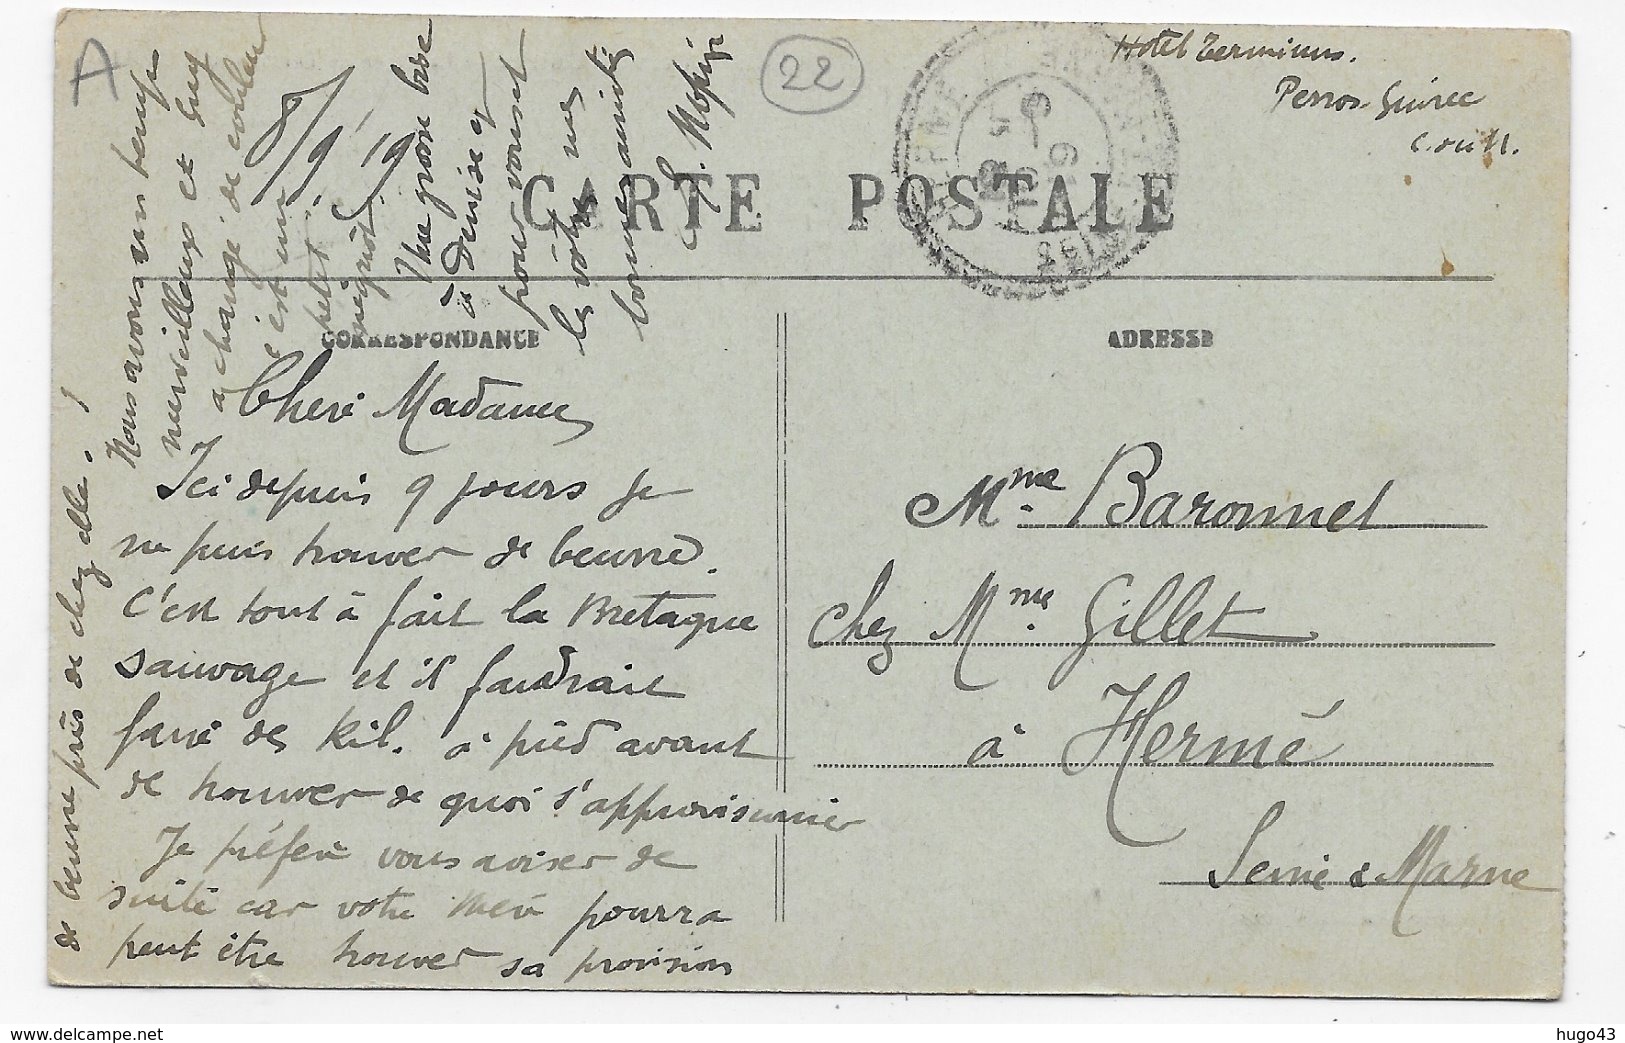 A
22
Hotel Terminus.
Perros-Guirec
C. du N.
CARTE POSTALE
CORRESPONDANCE
ADRESSE
8/9/19
Chere Madame
Ici depuis 9 jours je
ne puis trouver de beurre.
C'est tout à fait la Bretagne
sauvage et il faudrait
faire des kil. à pied avant
de trouver de quoi s'approvisionner
Je préfère vous aviser de
suite car votre mère pourra
peut être trouver sa provision
de beurre près de chez elle !
Nous avons un temps
merveilleux et Guy
a changé de couleur
c'est un
petit
négriot.
Une grosse bise
à Denise et
pour vous et
les vôtres mes
bonnes amitiés
Mme Baronnet
chez Mme Gillet
à Hermé
Seine & Marne
hugo43